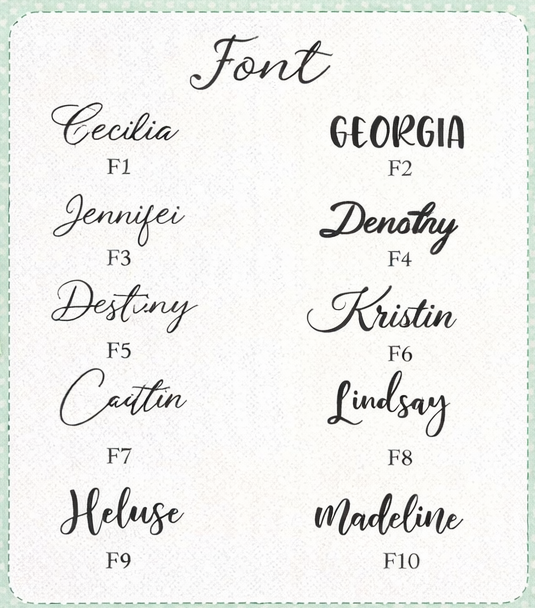 Font
Cecilia GEORGIA
F1 F2
Jennifei Denothy
F3 F4
Destiny Kristin
F5 F6
Caitlin Lindsay
F7 F8
Heluse Madeline
F9 F10